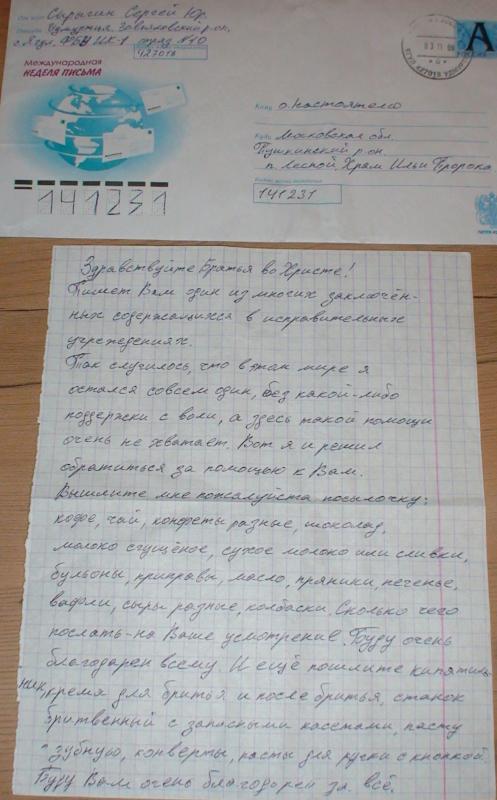 Сергей Юр.
Удмуртия, Завьяловский р-он,
с. Ягул. ФБУ ИК-1 отряд №10
427018
Международная
НЕДЕЛЯ ПИСЬМА
А
Кому о. настоятелю
Куда Московская обл.
Пушкинский р-он.
п. Лесной Храм Ильи Пророка
141231
141231
Здравствуйте Братья во Христе!
Пишет Вам один из многих заключён-
ных содержащихся в исправительных
учреждениях.
Так случилось, что в этом мире я
остался совсем один, без какой-либо
поддержки с воли, а здесь такой помощи
очень не хватает. Вот я и решил
обратиться за помощью к Вам.
Вышлите мне пожалуйста посылочку:
кофе, чай, конфеты разные, шоколад,
молоко сгущёное, сухое молоко или сливки,
бульоны, приправы, масло, пряники, печенье,
вафли, сыры разные, колбаски. Сколько чего
послать-на Ваше усмотрение. Буду очень
благодарен всему. И ещё пошлите кипятиль-
ник, крема для бритья и после бритья, станок
бритвенный с запасными касетами, пасту
зубную, конверты, пасты для ручки с кнопкой.
Буду Вам очень благодарен за всё.